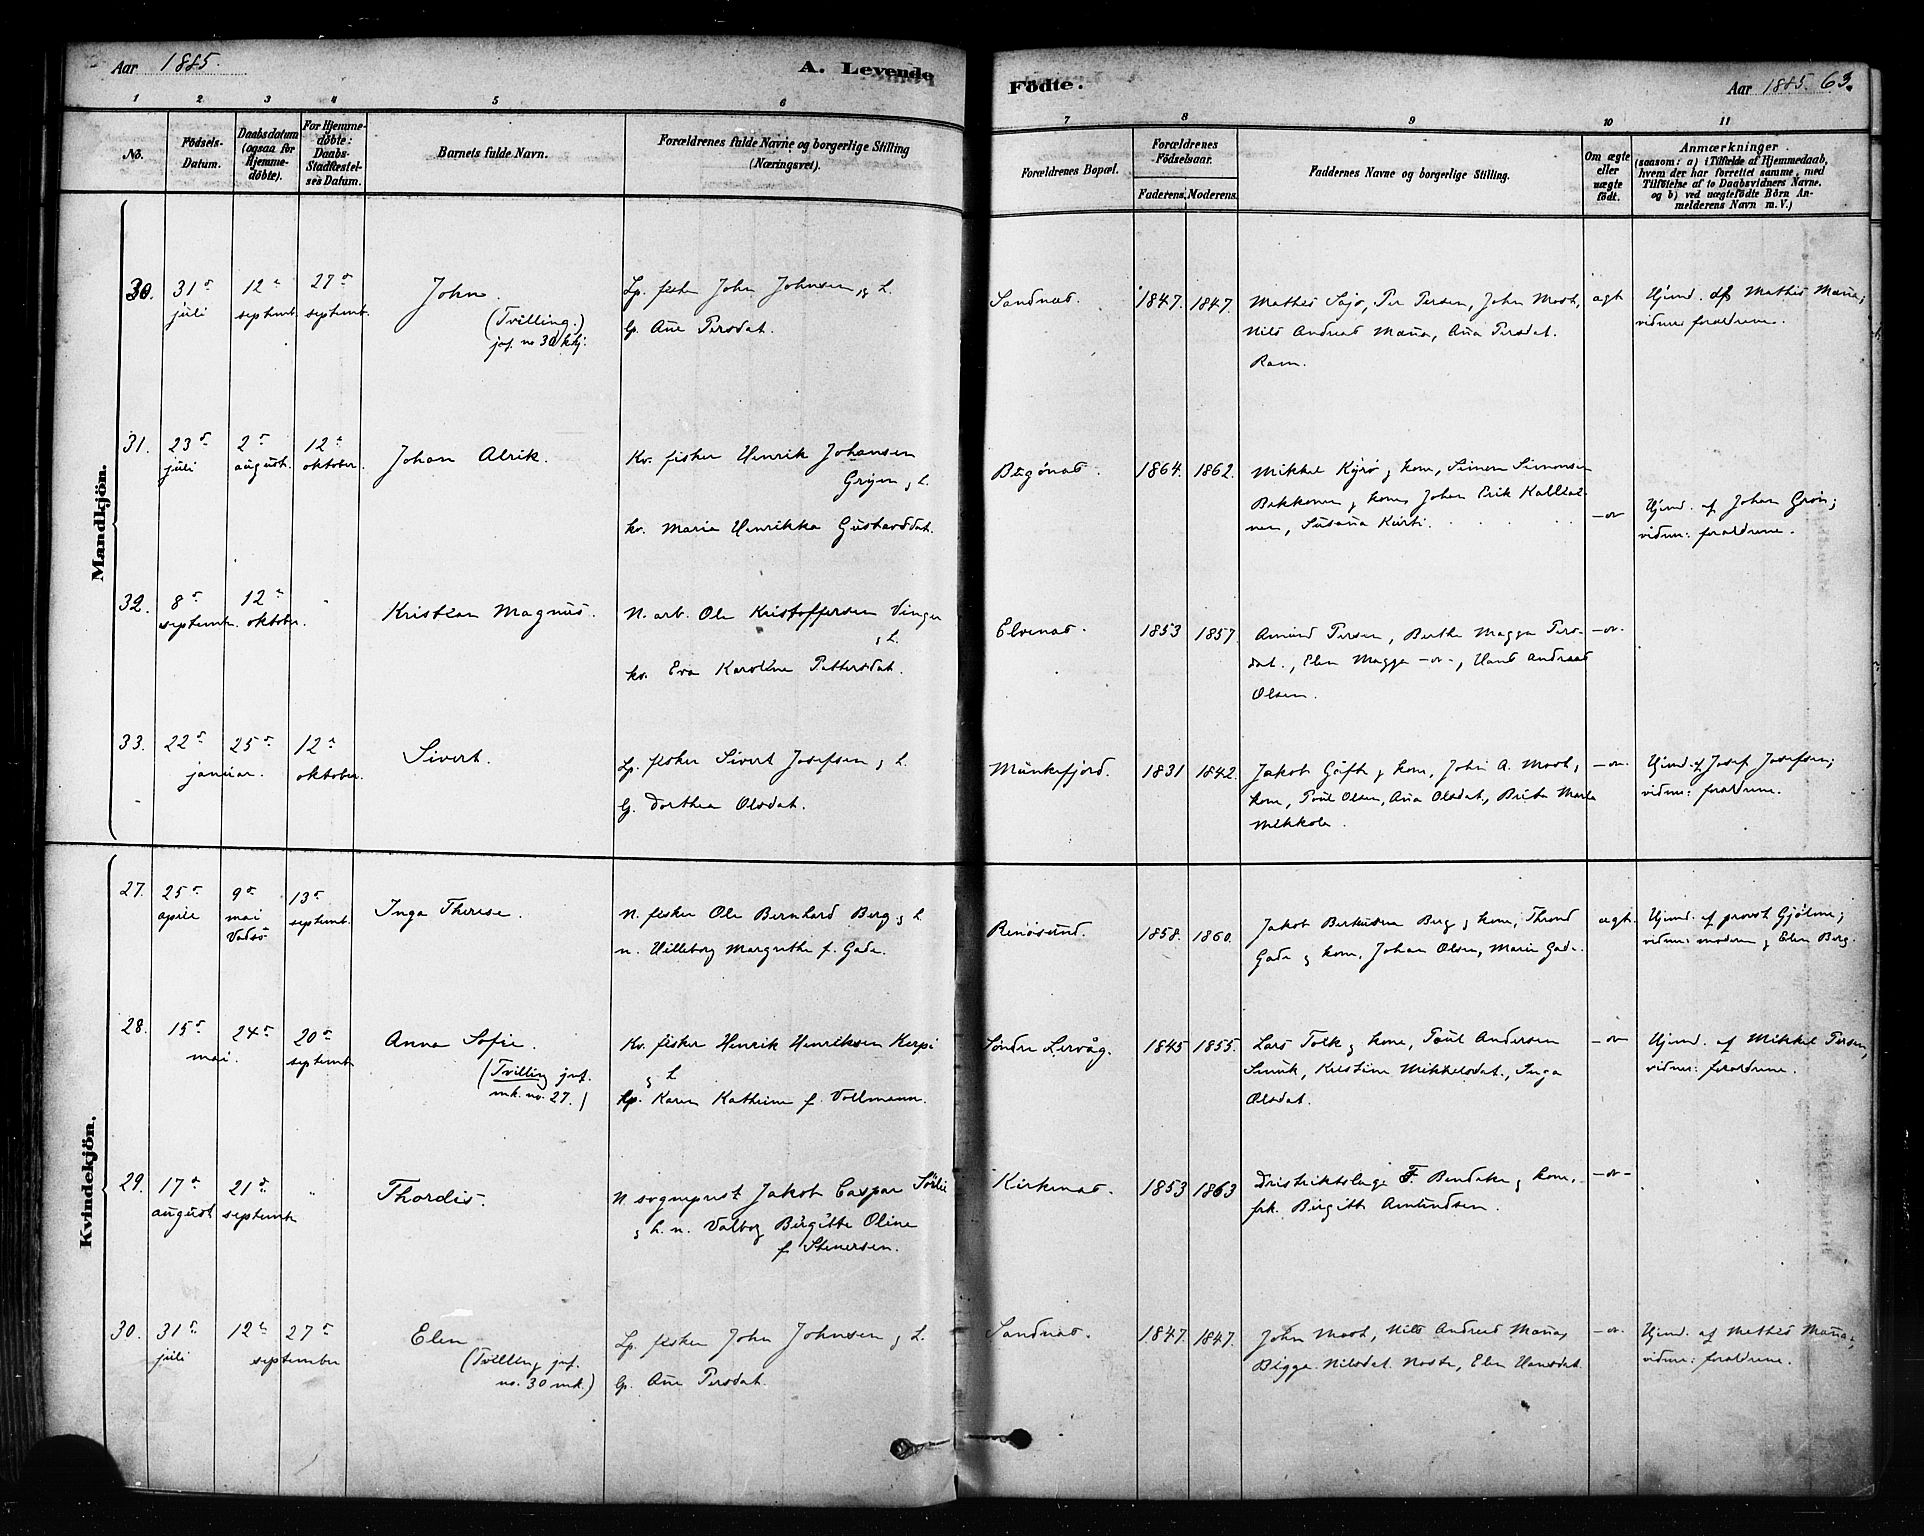 Aar 1885.
A. Levende
Födte.
Aar 1885. 63.
1 2 3 4 5 6 7 8 9 10 11
No.
Födsels-Datum.
Daabsdatum (ogsaa for Hjemme-döbte).
For Hjemme-döbte: Daabs-Stadfæstel-ses Datum.
Barnets fulde Navn.
Forældrenes fulde Navne og borgerlige Stilling (Næringsvei).
Forældrenes Bopæl.
Forældrenes Födselsaar.
Faderens. Moderens.
Faddernes Navne og borgerlige Stilling.
Om ægte eller uægte födt.
Anmærkninger.
(saasom: a) i Tilfælde af Hjemmedaab, hvem der har forrettet samme, med Tilföielse af to Daabsvidners Navne, og b) ved uægtefödte Börn An-melderens Navn m. V.)
Mandkjön.
30. 31 juli 12 septemb. 27 septemb.
John. (Tvilling.) jvf. no 30 kkj.
Lp. fisker John Johnsen og h.
lp. Ane Persdat.
Sandnæs. 1847. 1847.
Mathis Sajo, Per Persen, John Mosh,
Nils Andreas Manna, Ana Persdat.
Ram.
ægt
Hjemd. af Mathis Manna;
vidner: forældrene.
31. 23 juli 2 august. 12 oktober.
Johan Alrik.
Kv. fisker Henrik Johansen
Grijen og h.
kv. Maria Henrikka Gustavsdat.
Bugönæs. 1864. 1862.
Mikkel Kyrö og kone, Simon Simonsen
Bakkonen og kone, Johan Erik Kallial-
nen, Susana Kurti.
-o-
Hjemd. af Johan Grön;
vidner: forældrene.
32. 8 septembr. 12 oktober.
Kristian Magnus.
N. arb. Ole Kristoffersen Vinger
og h.
kv. Eva Karoline Pettersdat.
Elvenæs. 1853 1857.
Amund Persen, Berthe Magga Pers-
dat., Elen Magga -o-, Hans Andreas
Olsen.
-o-
33. 22 25 januar. 12 oktober.
Sivert.
Lp. fisker Sivert Josefsen og h.
lp. Dorthea Olsdat.
Munkefjord. 1831 1842.
Jakob Gåft og kone, John A. Mosh,
kone, Poul Olsen, Ana Olsdat., Brita Marta
Mikkola.
-o-
Hjemd. af Josef Josefsen;
vidner: forældrene.
Kvindekjön.
27. 25 april 9 mai Vadsö 13 septemb.
Inga Therese.
N. fisker Ole Bernhard Berg og h.
n. Villeborg Margrethe f. Gade.
Renösund. 1858. 1860.
Jakob Berg og kone, Thrond
Gade og kone, Johan Olsen, Marie Gade.
ægt.
Hjemd. af provst Gjölme;
vidner: moderen og Elen Berg.
28. 15 24 mai. 20 septemb
Anna Sofie. (Tvilling jvf. mk. no. 27.)
Kv. fisker Henrik Henriksen Kerpi
og h.
kp. Karen Kathrine f. Vollmann.
Söndre Lervåg. 1845 1855.
Lars Tolk og kone, Poul Andersen
Smuk, Kristine Mikkelsdat., Inga
Olsdat.
-o-
Hjemd. af Mikkel Persen,
vidner: forældrene.
29. 17 august 21 septembr
Thordis.
N. sogneprest Jakob Caspar Sörlie
og h. n. Valborg Birgitte Oline
f. Stenersen.
Kirkenæs. 1853 1863
Distriktslæge F. Bendeke og kone,
frk. Birgitte Amundsen.
-o-
30. 31 juli 12 27 september
Elen (Tvilling jvf. no. 30 mk.)
Lp. fisker John Johnsen og h.
lp. Ane Persdat.
Sandnæs. 1847. 1847.
John Mosh, Nils Andreas Manna,
Bigga Nilsdat. Noste, Elen Hansdat.
-o-
Hjemd. af Mathis Manna;
vidner: forældrene.